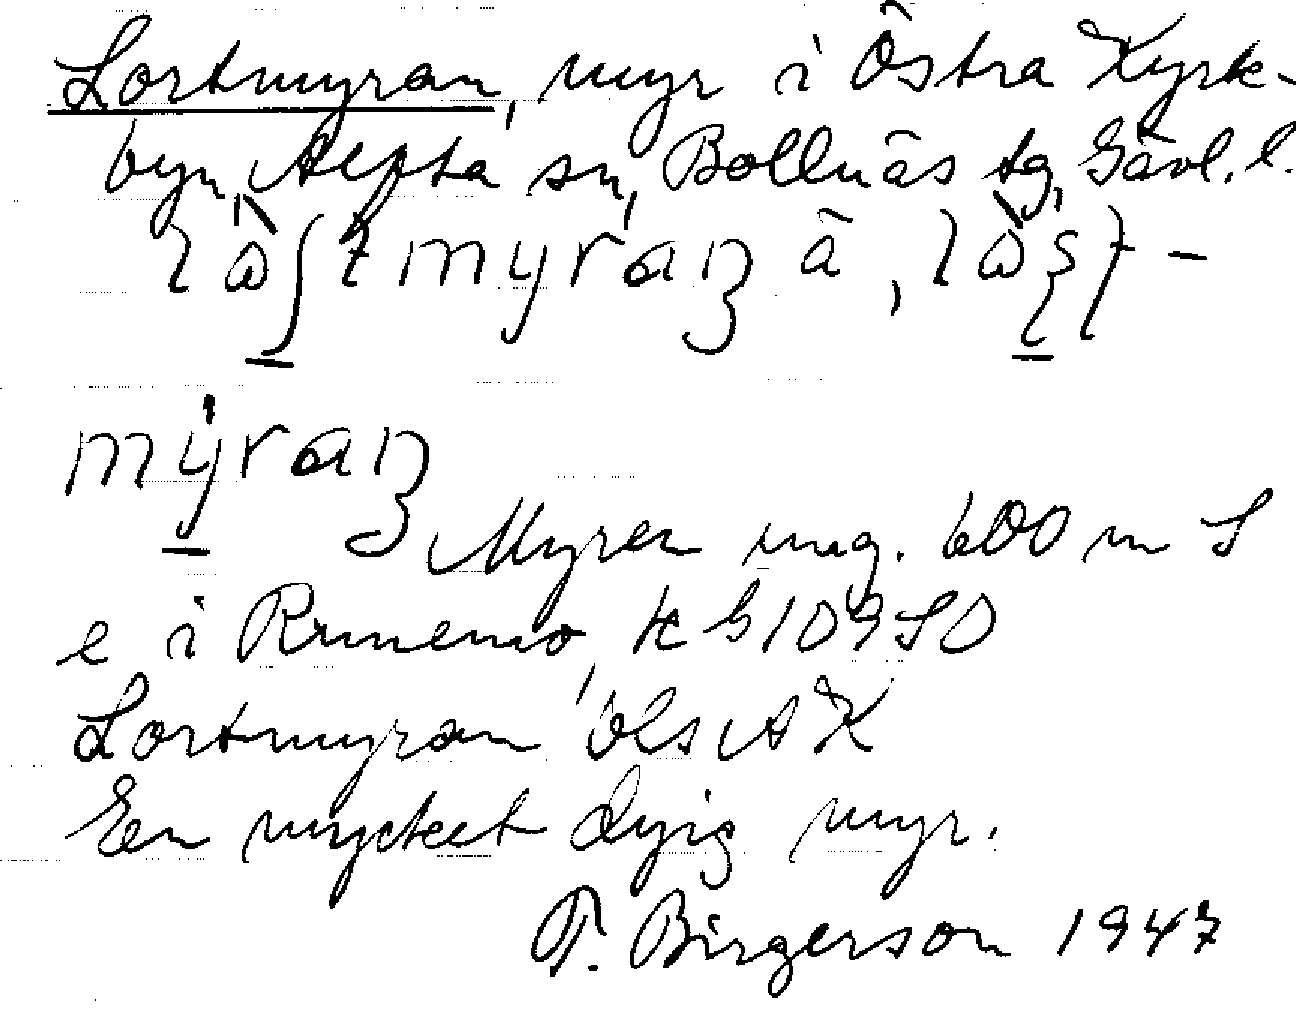 Lortmyran, myr i Östra Kyrk-
byn, Alfta sn, Bollnäs tg, Gävl. l.
myran
Myren ung. 600 m S
e i Runemo, k G 109 SO
Lortmyran bls AK
En mycket dyig myr.
T. Birgerson 1947